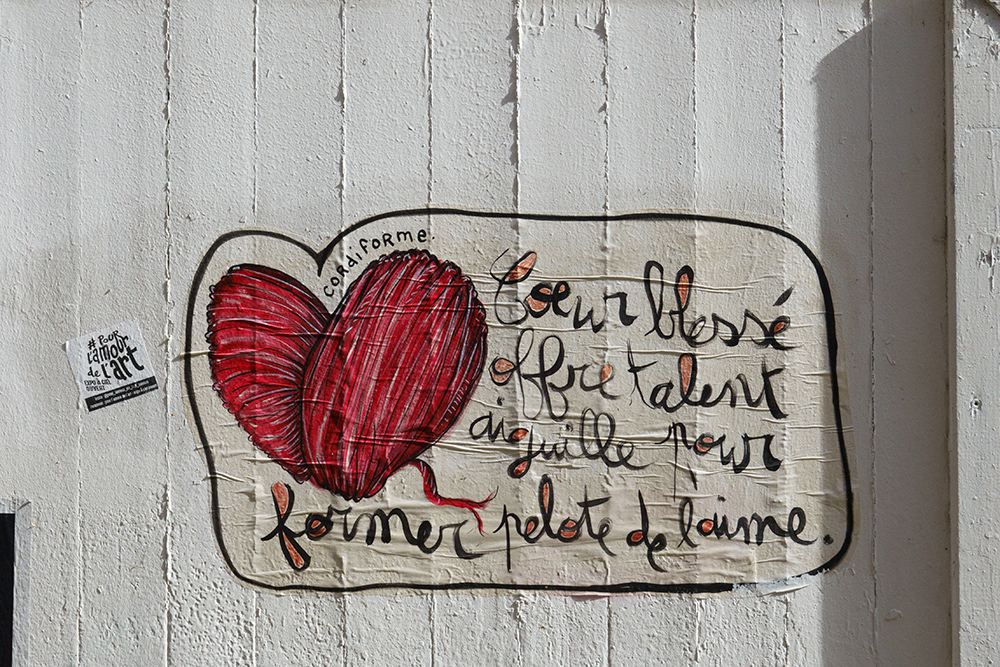 cordiforme.
Coeur blessé
offre talent
aiguille pour
former pelote de l'aime.
# POUR
l'amour
de l'art
EXPO À CIEL
OUVERT